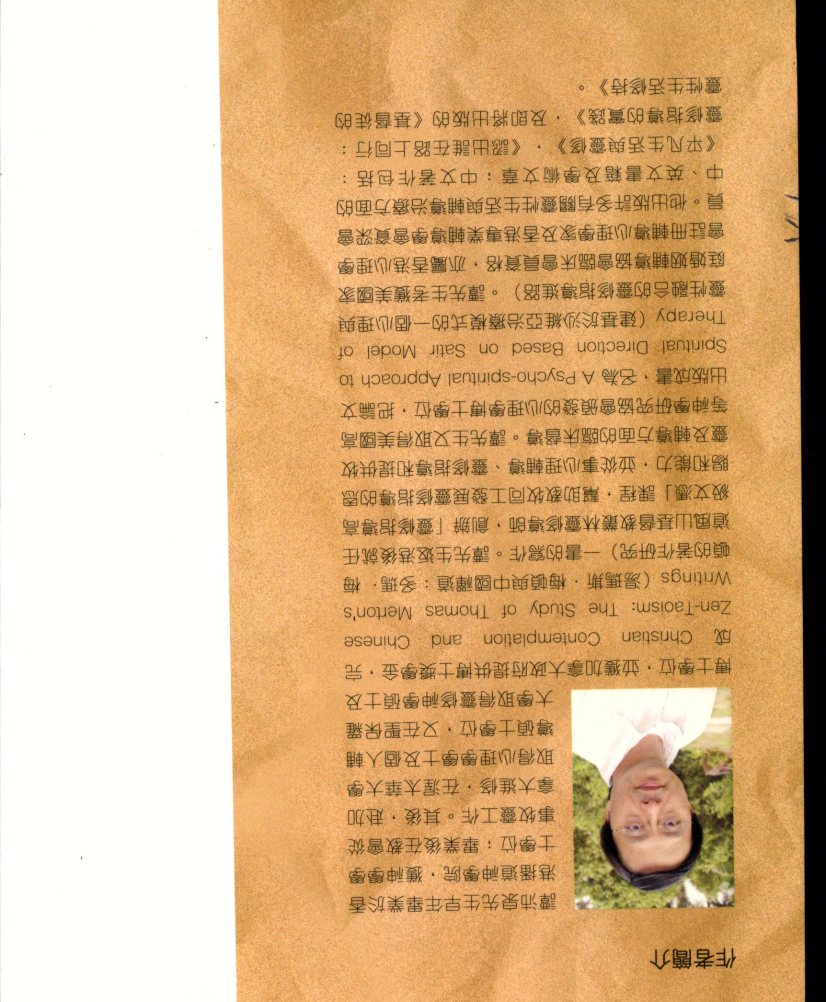 作者簡介
譚沛泉先生早年畢業於香
港播道神學院，獲神學學
士學位；畢業在後教會從
事牧靈工作。其後，赴加
拿大進修，在渥太華大學
取得心理學學士及個人輔
導碩士學位，又在聖保羅
大學取得靈修神學碩士及
博士學位，並獲加拿大政府提供博士獎學金，完
成 Christian Contemplation and Chinese
Zen-Taoism: The Study of Thomas Merton's
Writings（湯瑪斯．梅頓與中國禪道：多瑪．梅
頓的著作研究）一書的寫作。譚先生返港後就任
道風山基督教叢林靈修導師，創辦「靈修指導高
級文憑」課程，幫助教牧同工發展靈修指導的恩
賜和能力，並從事心理輔導、靈修指導和提供牧
靈及輔導方面的臨床督導。譚先生又取得美國高
等神學研究協會頒發的心理學博士學位，把論文
出版成書，名為 A Psycho-spiritual Approach to
Spiritual Direction Based on Satir Model of
Therapy（建基於沙維亞治療模式的一個心理與
靈性融合的靈修指導進路）。譚先生考獲美國家
庭婚姻輔導協會臨床會員資格，亦屬香港心理學
會註冊輔導心理學家及香港專業輔導學會資深會
員。他出版許多有關靈性生活與輔導治療方面的
中、英文書籍及學術文章；中文著作包括：
《平凡生活與靈修》，《認出誰在路上同行：
靈修指導的實踐》，及即將出版的《基督徒的
靈性生活修持》。